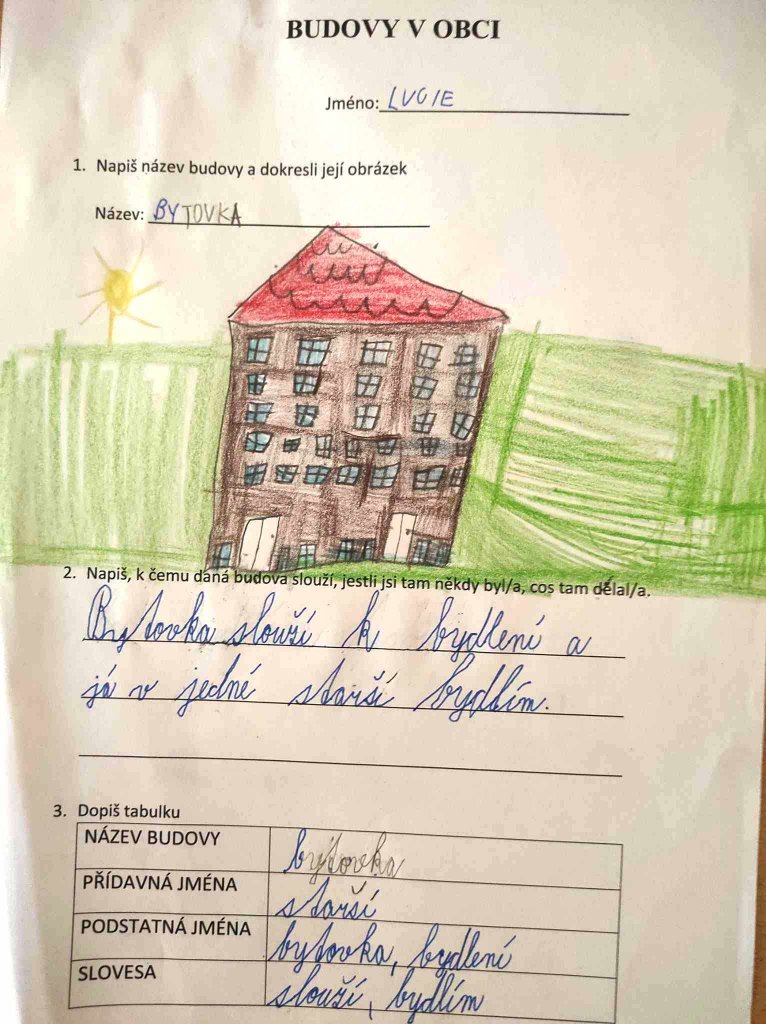 BUDOVY V OBCI
Jméno: LUCIE
1. Napiš název budovy a dokresli její obrázek
Název: BYTOVKA
2. Napiš, k čemu daná budova slouží, jestli jsi tam někdy byl/a, cos tam dělal/a.
Bytovka slouží k bydlení a
já v jedné starší bydlím.
3. Dopiš tabulku
NÁZEV BUDOVY bytovka
PŘÍDAVNÁ JMÉNA starší
PODSTATNÁ JMÉNA bytovka, bydlení
SLOVESA slouží, bydlím